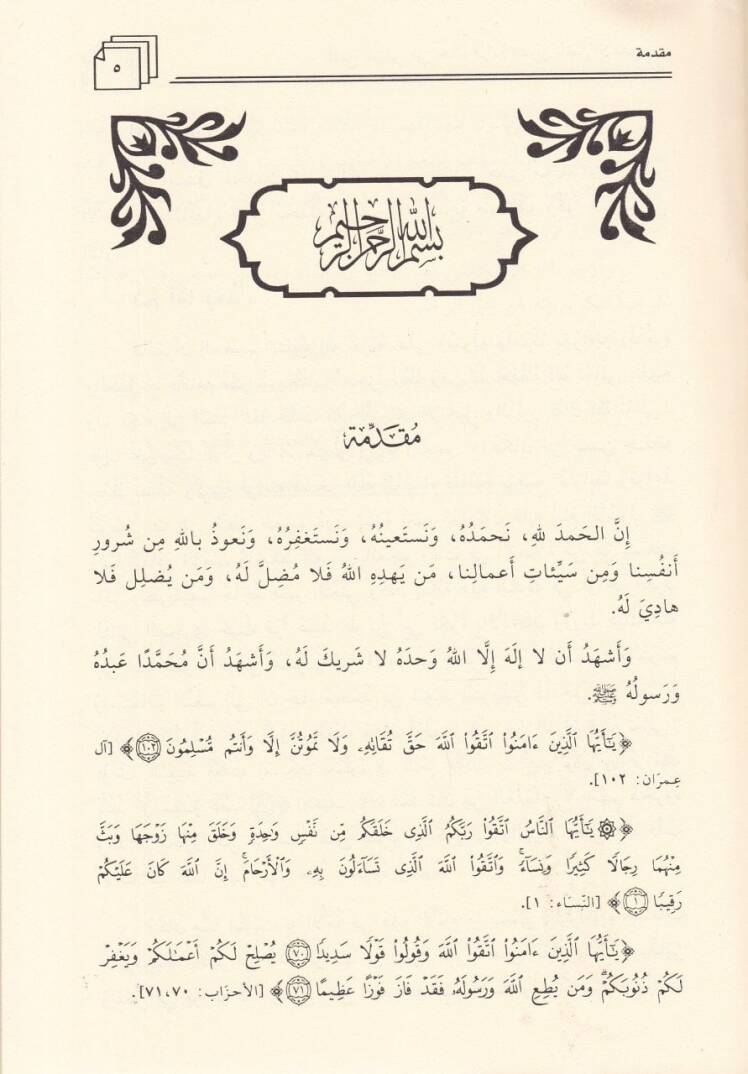 مقدمة
٥
بسم الله الرحمن الرحيم
مُقَدِّمة
إنَّ الحَمدَ للهِ، نَحمَدُهُ، وَنَستَعينُهُ، وَنَستَغفِرُهُ، وَنَعوذُ بالله مِن شُرورِ
أَنفُسِنا وَمِن سَيِّئاتِ أَعمالِنا، مَن يَهدِهِ اللهُ فَلا مُضِلَّ لَهُ، وَمَن يُضلِل فَلا
هادِيَ لَهُ.
وَأَشهَدُ أَن لا إلَهَ إلَّا اللهُ وَحدَهُ لا شَريكَ لَهُ، وَأَشهَدُ أَنَّ مُحَمَّدًا عَبدُهُ
وَرَسولُهُ ﷺ.
﴿يَٰٓأَيُّهَا ٱلَّذِينَ ءَامَنُوا۟ ٱتَّقُوا۟ ٱللَّهَ حَقَّ تُقَاتِهِۦ وَلَا تَمُوتُنَّ إِلَّا وَأَنتُم مُّسْلِمُونَ ۝١٠٢﴾ [آل
عِمرَان: ١٠٢].
﴿۞ يَٰٓأَيُّهَا ٱلنَّاسُ ٱتَّقُوا۟ رَبَّكُمُ ٱلَّذِى خَلَقَكُم مِّن نَّفْسٍ وَٰحِدَةٍ وَخَلَقَ مِنْهَا زَوْجَهَا وَبَثَّ
مِنْهُمَا رِجَالًا كَثِيرًا وَنِسَآءً ۚ وَٱتَّقُوا۟ ٱللَّهَ ٱلَّذِى تَسَآءَلُونَ بِهِۦ وَٱلْأَرْحَامَ ۚ إِنَّ ٱللَّهَ كَانَ عَلَيْكُمْ
رَقِيبًا ۝١﴾ [النِّسَاء: ١].
﴿يَٰٓأَيُّهَا ٱلَّذِينَ ءَامَنُوا۟ ٱتَّقُوا۟ ٱللَّهَ وَقُولُوا۟ قَوْلًا سَدِيدًا ۝٧٠ يُصْلِحْ لَكُمْ أَعْمَٰلَكُمْ وَيَغْفِرْ
لَكُمْ ذُنُوبَكُمْ ۗ وَمَن يُطِعِ ٱللَّهَ وَرَسُولَهُۥ فَقَدْ فَازَ فَوْزًا عَظِيمًا ۝٧١﴾ [الأحزَاب: ٧١،٧٠].